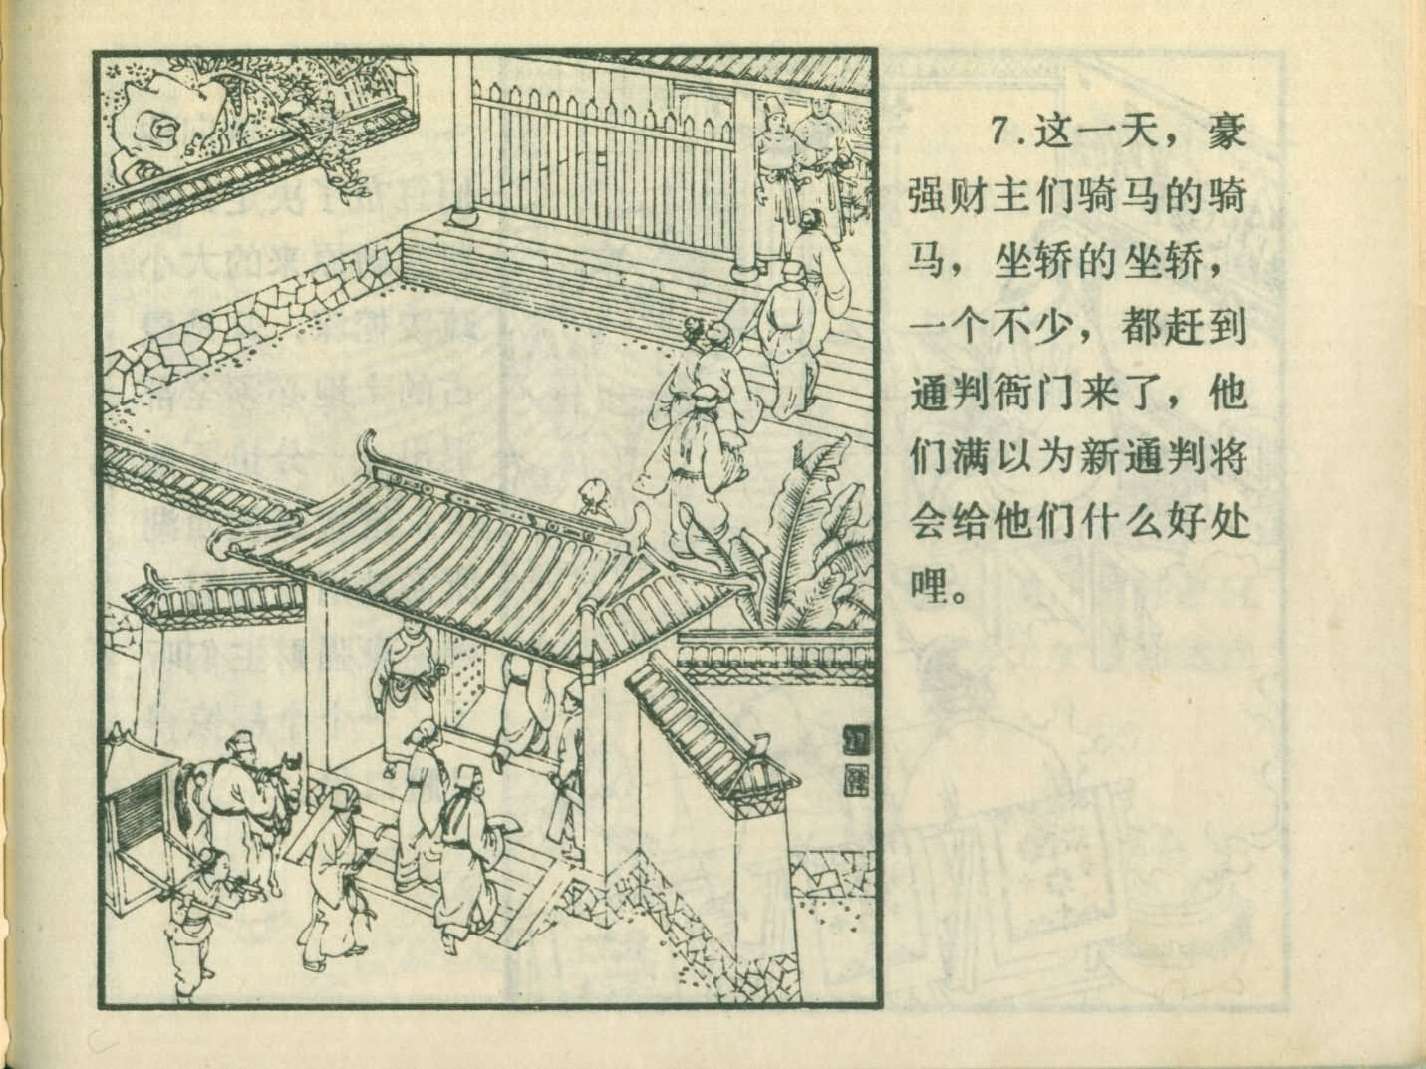 7.这一天，豪
强财主们骑马的骑
马，坐轿的坐轿，
一个不少，都赶到
通判衙门来了，他
们满以为新通判将
会给他们什么好处
哩。